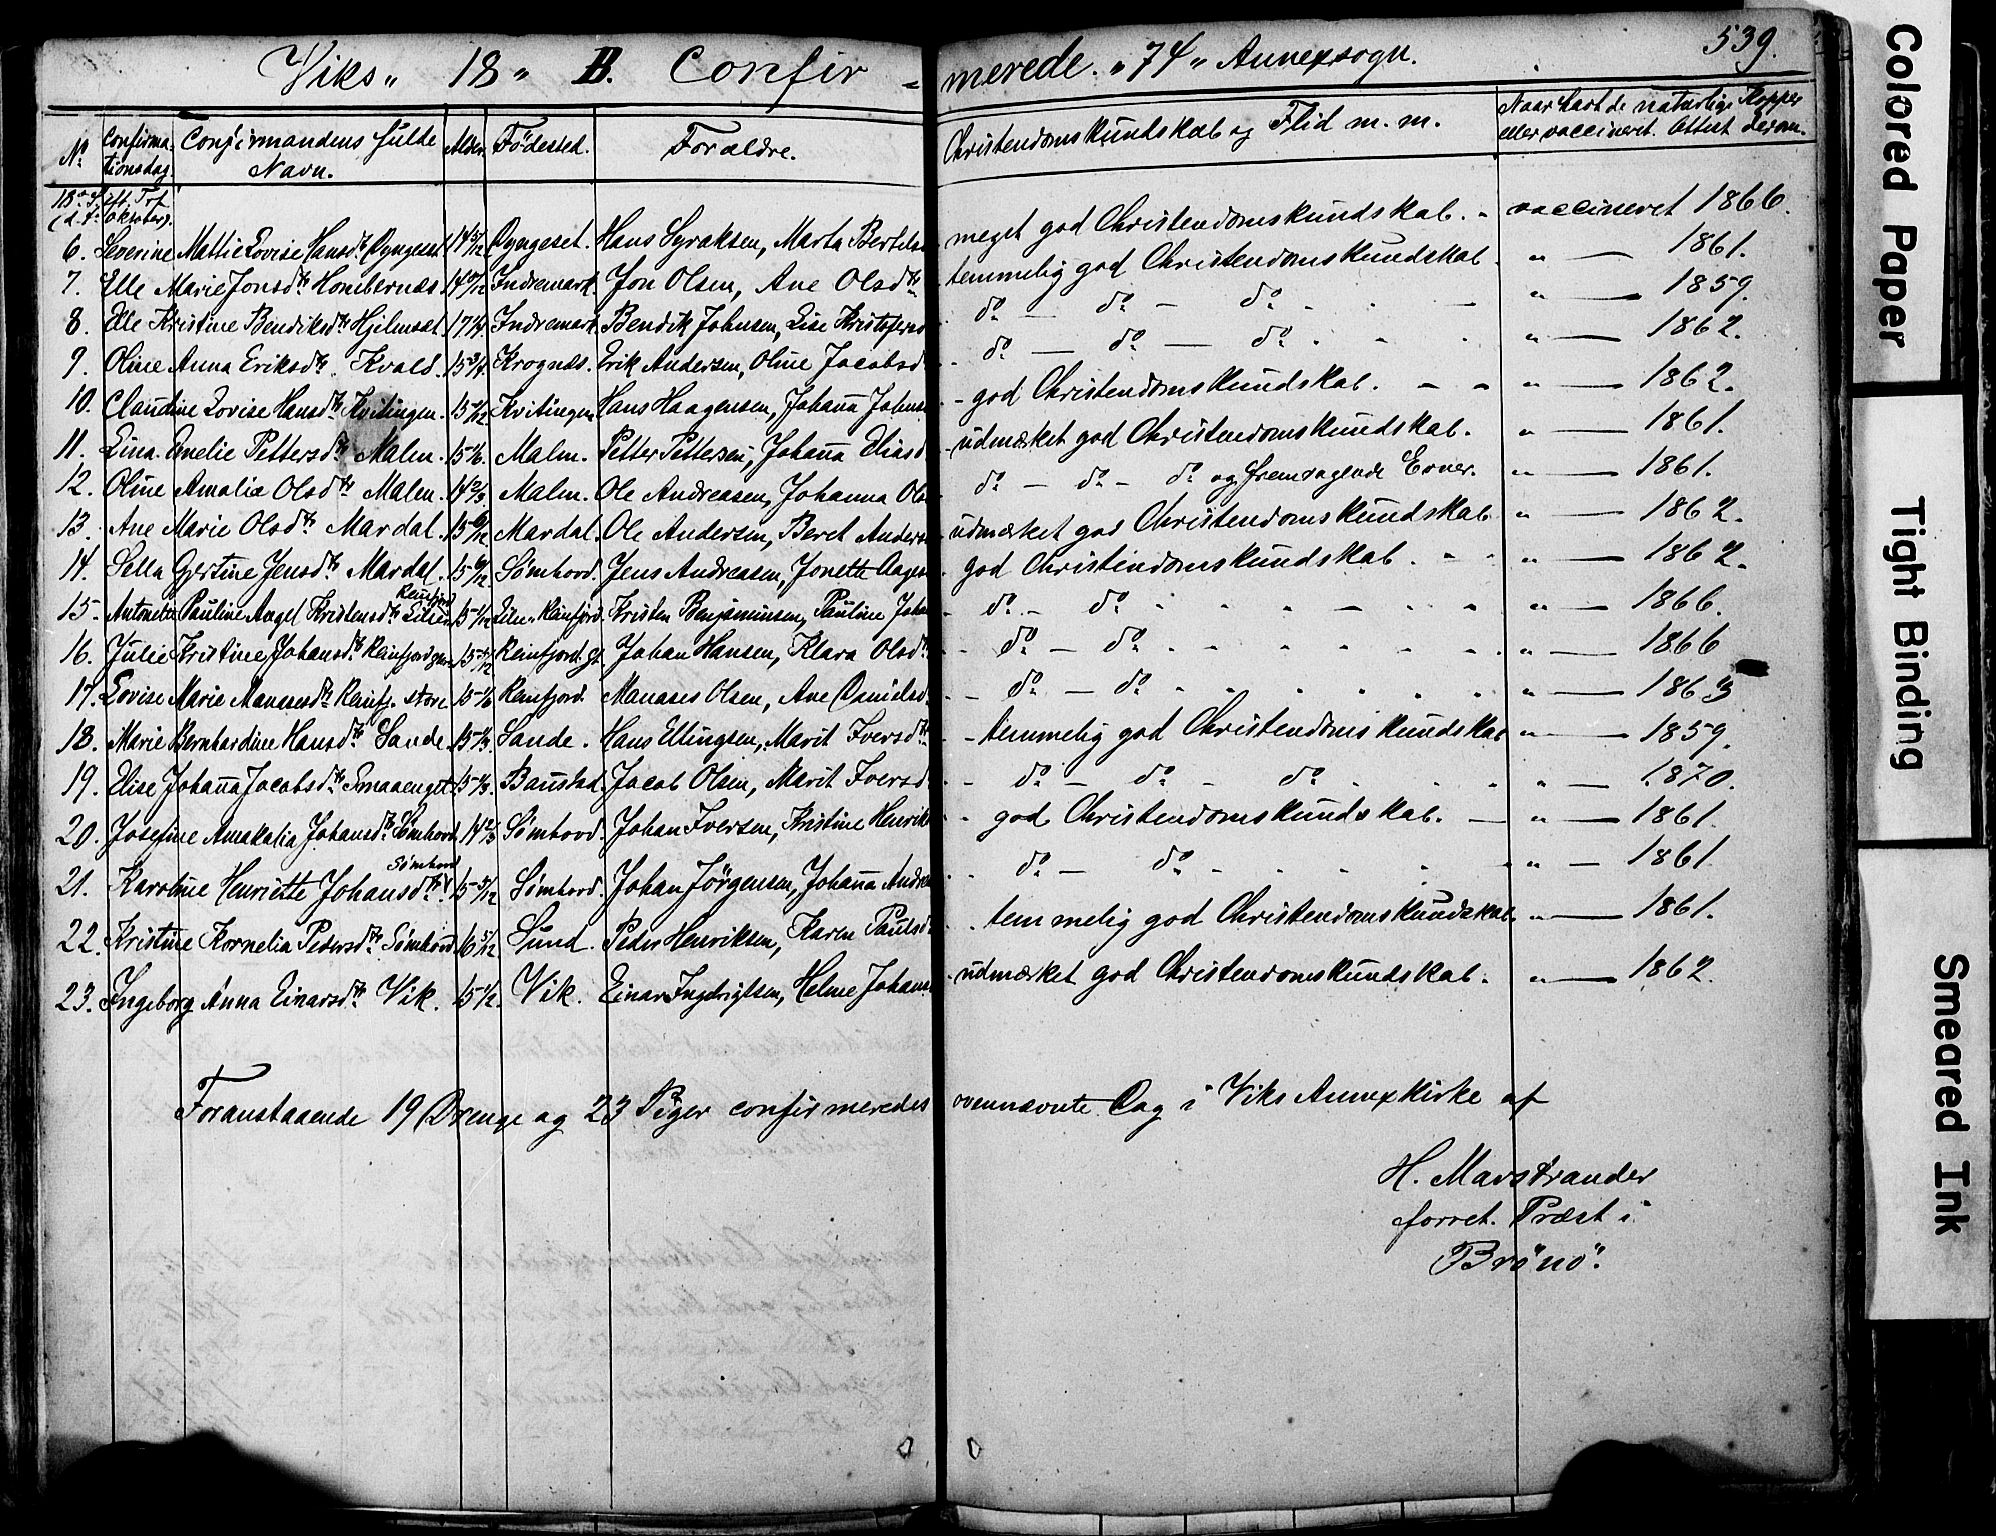 Viks „ 18 „ B. Confir- merede. „ 74 „ Annexsogn. 539.
No Confirma-tionsdag. Confirmandens fulde Navn. Alder. Födested. Forældre. Christendomskundskab og Flid m. m. Naar havt de naturlige Kopper eller vaccineret. Attest derom.
18de S. eft. Trf.
(d. 4de Oktober).
6. Severine Mattie Lovise Hansdtr Dyngeset 14 5/12 Dyngeset. Hans Syraksen, Marta Bertels meget god Christendomskundskab. „ vaccineret 1866.
7. Elle Marie Jonsdtr Hombernæs 14 Indremark. Jon Olsen, Ane Olsdtr temmelig god Christendomskundskab. „ — 1861.
8. Elle Kristine Bendiksdtr Hjelmset 17 1/4 Indremark. Bendik Johnsen, Lise Kristofersd do — do — do „ — 1859.
9. Oline Anna Eriksdtr Kvald. 15 3/4 Krognæs. Erik Andersen, Oline Jacobsd. do — do — do „ — 1862.
10. Claudine Lovise Hansdtr Kvitingen. 15 Kvitingen Hans Haagensen, Johana Johns god Christendomskundskab. „ — 1862.
11. Lina Amelie Pettersdtr Malm. 15 1/6. Malm. Petter Pettersen, Johana Eliasd udmærket god Christendomskundskab. „ — 1861.
12. Oline Amalia Olsdtr Malm. 14 2/3. Malm. Ole Andreasen, Johanna Ols do — do — do og fremragende Evner. „ — 1861.
13. Ane Marie Olsdtr Mardal. 15 Mardal. Ole Andersen, Beret Anders udmærket god Christendomskundskab „ — 1862.
14. Sella Gjertine Jensdtr Mardal. 15 Sömhovd. Jens Andreasen, Jonette Aages god Christendomskundskab. „ — 1862.
15. Antonette Pauline Angel Kristensdtr Reinfjord Lilien 15 1/12 Lilen Reinfjord. Kristen Benjaminsen, Pauline Joha do — do „ — 1866.
16. Julie Kristine Johansdtr Reinfjord 15 Reinfjord. Johan Hansen, Klara Olsd. do — do „ — 1866
17. Lovise Marie Manasesdtr Reinfj. store 15 1/6 Reinfjord. Manases Olsen, Ane Danielsd. do — do „ — 1863
18. Marie Bernhardine Hansdtr Sande. 15 Sande. Hans Ellingsen, Marit Iversdtr temmelig god Christendomskundskab „ — 1859.
19. Elise Johana Jacobsdtr Smaaenget. 15 1/3. Baustad. Jacob Olsen, Marit Iversd. do — do — do „ — 1870.
20. Josefine Amakalia Johansdtr Sömhovd. 14 2/3 Sömhovd. Johan Iversen, Kristine Henriks god Christendomskundskab. „ — 1861.
21. Karoline Henriette Johansdtr Sömhovd. 15 5/12 Sömhovd. Johan Jörgensen, Johana Andre do — do „ — 1861
22. Kristine Kornelia Pedersdtr Sömhovd 16 5/12. Sund. Peder Henriksen, Karen Paulsd. temmelig god Christendomskundskab. „ — 1861.
23. Ingeborg Anna Einarsdtr Vik. 15 1/2. Vik. Einar Ingebrigtsen, Helene Johans udmærket god Christendomskundskab. „ — 1862.
Foranstaaende 19 Drenge og 23 Piger confirmeredes ovennævnte Dag i Viks Annexkirke af
H. Marstrander
forret. Præst i
Brönö.
Colored Paper
Tight Binding
Smeared Ink